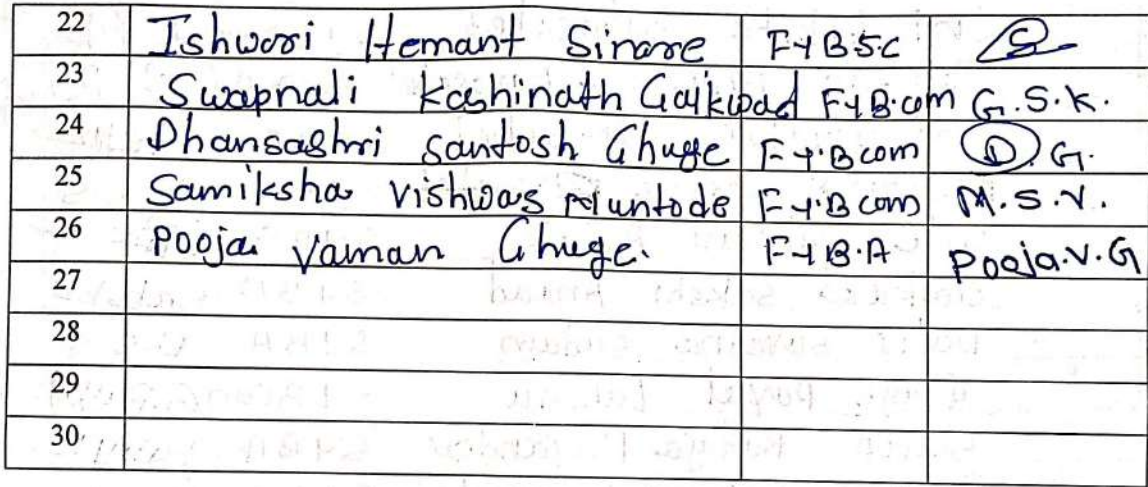 22 Ishwari Hemant Sinare F.Y B.S.C
23 Swapnali Kashinath Gaikwad F.Y B.com G.S.K.
24 Dhansashri Santosh Ghuge F.Y.B com D.G.
25 Samiksha Vishwas Muntode F.Y.B com M.S.V.
26 Pooja Vaman Ghuge. F.Y B.A Pooja.V.G
27
28
29
30